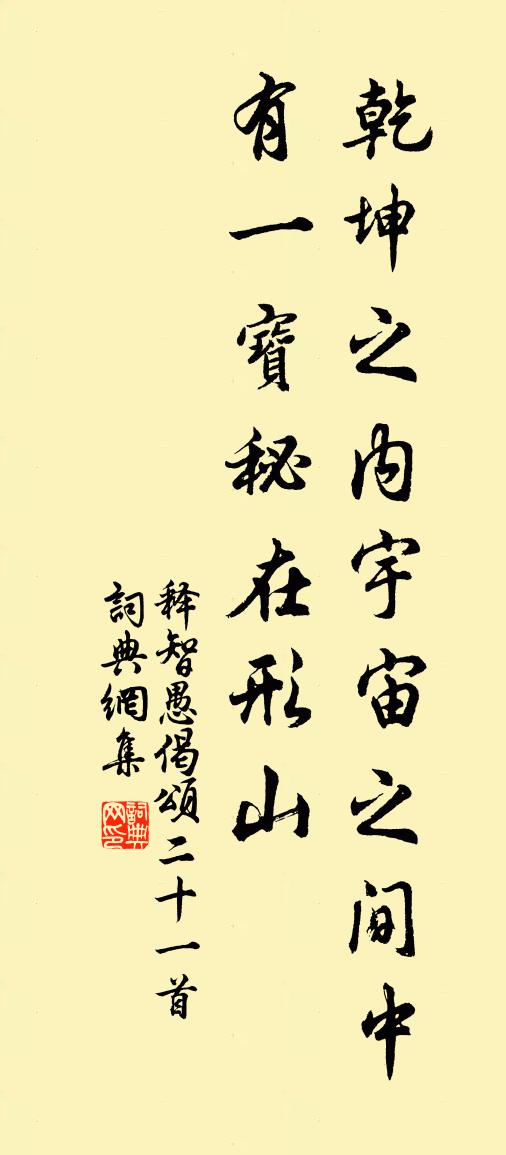 乾坤之内宇宙之间中
有一寶秘在形山
释智愚偈頌二十一首
詞典網集
詞典网印